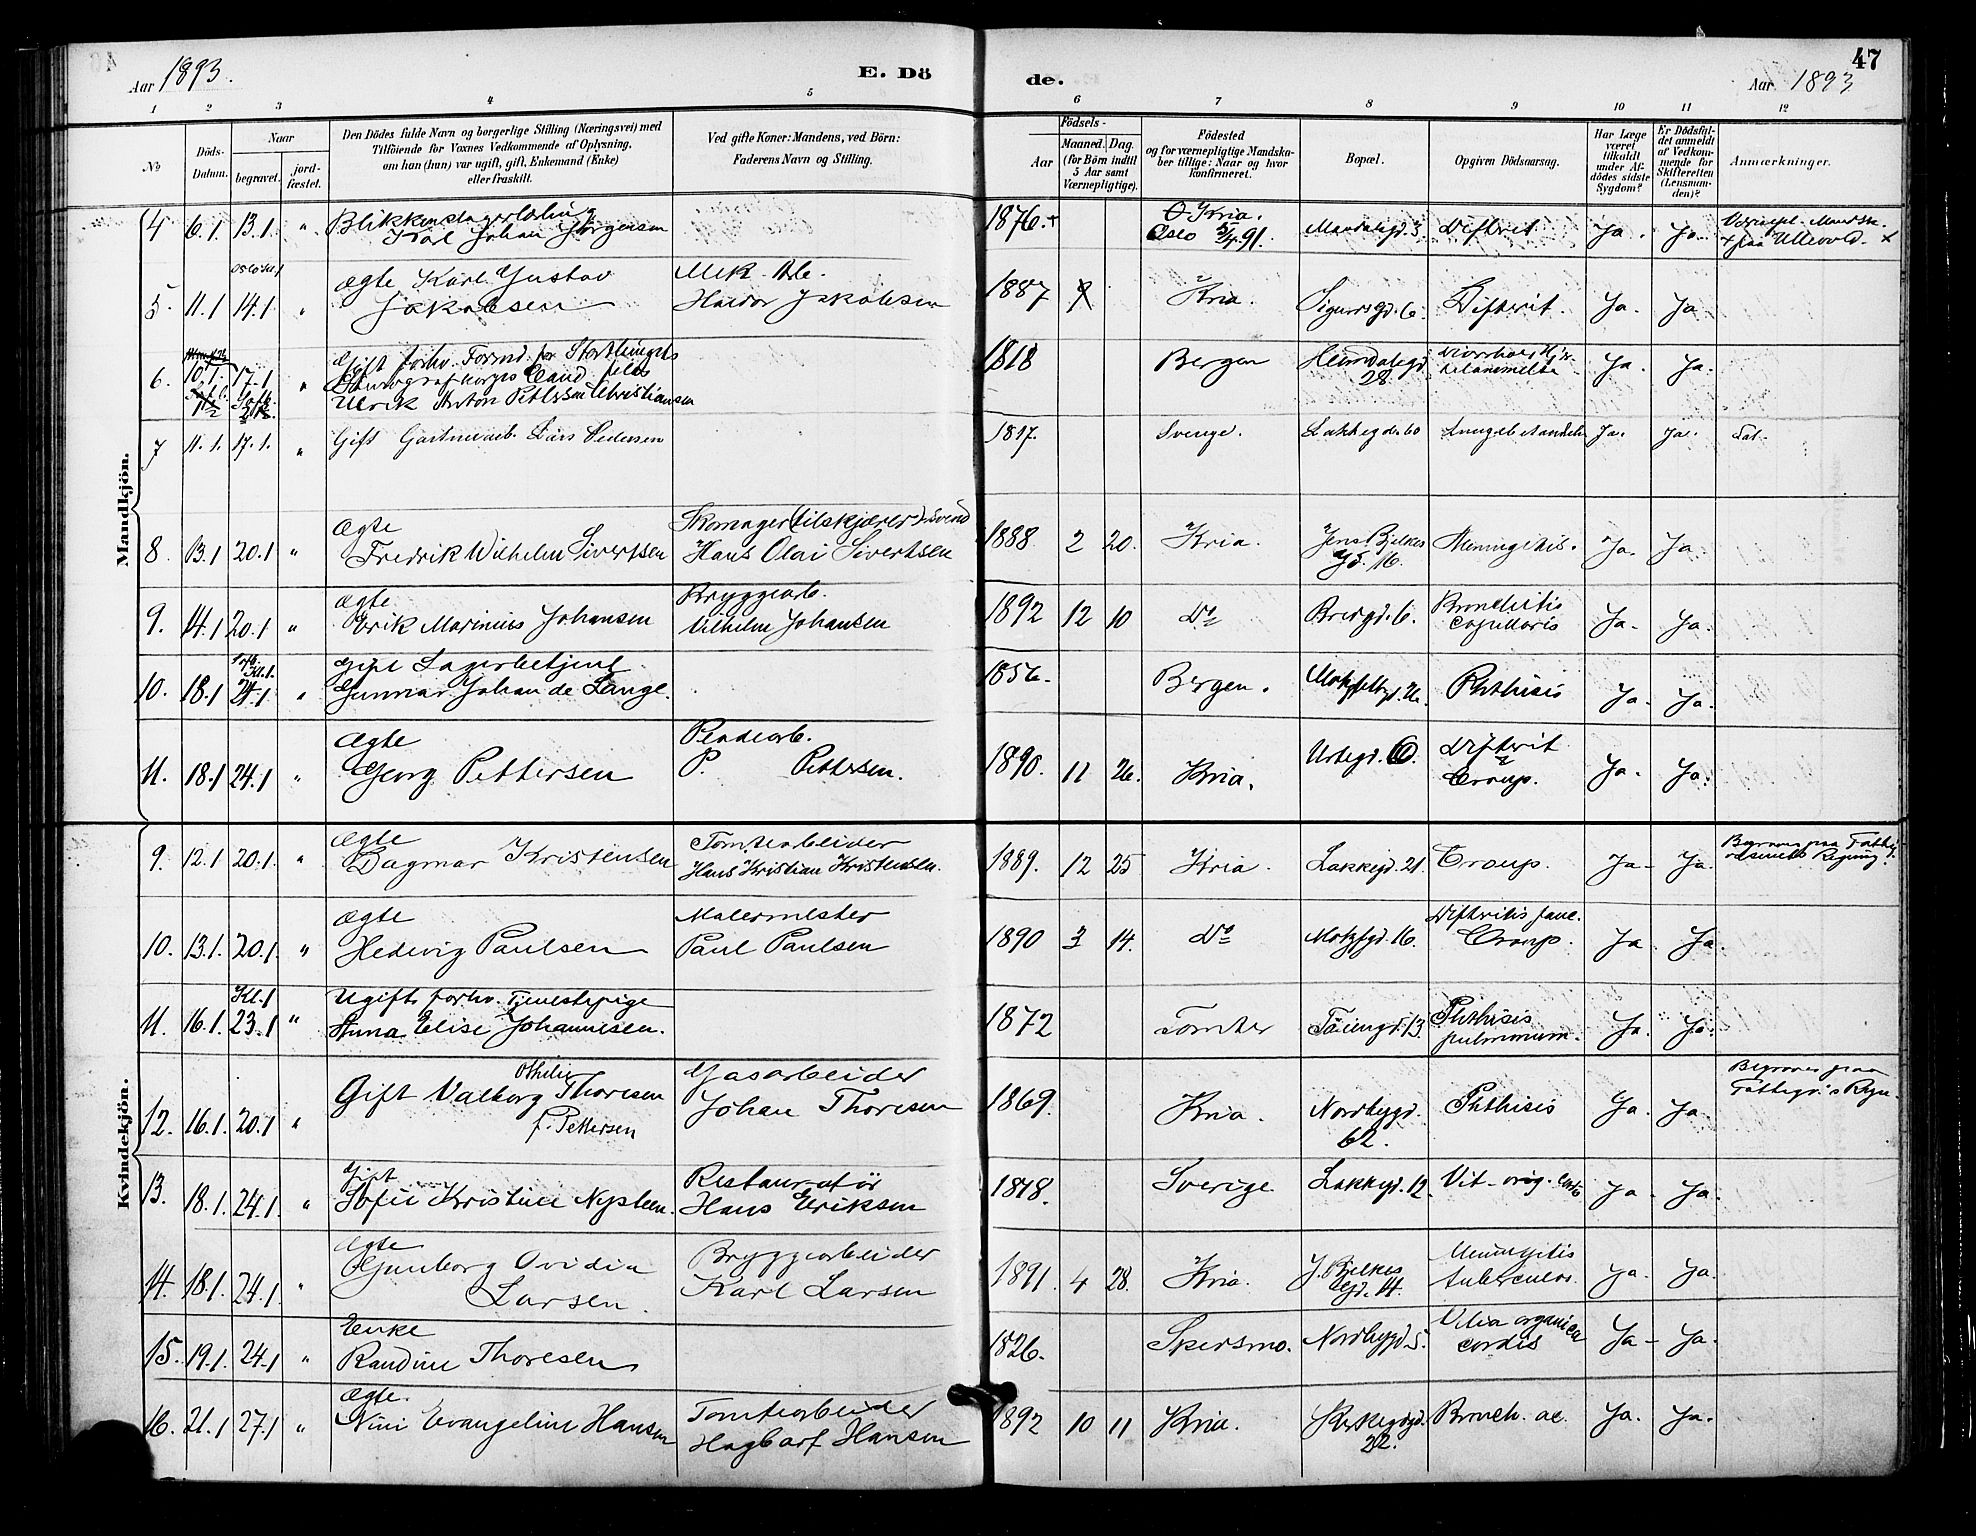 Aar 1893.
E. Döde.
47
Aar 1893
1 2 3 4 5 6 7 8 9 10 11 12
№
Döds-Datum.
Naar
begravet.
jord-fæstet.
Den Dödes fulde Navn og borgerlige Stilling (Næringsvei) med
Tilföiende for Voxnes Vedkommende af Oplysning,
om han (hun) var ugift, gift, Enkemand (Enke)
eller fraskilt.
Ved gifte Koner: Mandens, ved Börn:
Faderens Navn og Stilling.
Födsels-
Aar
Maaned. Dag.
(for Börn indtil
5 Aar samt
Værnepligtige).
Födested
og for værnepligtige Mandska-
ber tillige: Naar og hvor
konfirmeret.
Bopæl.
Opgiven Dödsaarsag.
Har Læge
været
tilkaldt
under Af-
dödes sidste
Sygdom?
Er Dödsfal-
det anmeldt
af Vedkom-
mende for
Skifteretten
(Lensman-
den)?
Anmærkninger.
Mandkjön.
4 6.1 13.1 " Karl Johan Jörgensen 1876 + Kria. Oslo 5/4 91. Difterit Ja. Ja. + paa Ullevold. +
5. 11.1 14.1 " Ægte Karl Gustav Jakobsen Mek. Arb. Jakobsen 1887 Kria. 6 Difterit. Ja. Ja
6. 10.1. 17.1 " Gift forhv. Formd. for Storthingets Cand. Ulrik Anton Petersen Christiansen 1818 Bergen Heimdalsgd 28 Ja. Ja.
7 11.1. 17.1. " Gift Lars Pedersen 1817. Sverige. Lakkegd. 60 Ja. Ja.
8. 13.1 20.1 " Ægte Fredrik Wilhelm Sivertsen Skomager (tilskjærer) svend Hans Olai Sivertsen 1888 2 20. Kria. Jens Bjelkes gd. 16. Meningitis. Ja. Ja.
9. 14.1 20.1 " Ægte Erik Marinius Johansen Bryggearb. Vilhelm Johansen 1892 12 10 Do Bredgd. 6. Bronchitis capillaris Ja. Ja.
10. 18.1 Kl. 1. 24.1 " Gift Lagerbetjent Gunnar Johan de Lange. 1856. Bergen. Phthisis Ja. Ja.
11. 18.1 24.1 " Ægte Georg Pettersen P. Pettersen. 1890. 11 26. Kria. Urtegd. Difterit Croup. Ja. Ja.
Kvindekjön.
9. 12.1 20.1 " Ægte Dagmar Kristensen Tomtearbeider Hans Kristian Kristensen. 1889. 12 25 Kria. Lakkegd. 21. Croup. Ja. Ja.
10. 13.1. 20.1. " Ægte Hedevig Paulsen Malermester Paul Paulsen 1890 3 14. Do Motzfgd. 16. Croup. Ja Ja.
11. 16.1. Kl. 1 23.1 " Ugift forhv. Tjenestepige Anna Elise Johannesen. 1872 Tomter Töiengd. 13. Phthisis pulmonum. Ja Ja.
12. 16.1. 20.1 " Gift Valborg Othilie Thoresen f. Pettersen Gasarbeider Johan Thoresen 1869. Kria. Nordbygd. 62. Phthisis Ja. Ja. Begraves paa
13. 18.1. 24.1. " Gift Sofie Kristine Nysteen. Restauratör Hans Eriksen 1848. Sverige Lakkegd. 12. Vit. org. cord. Ja. Ja.
14. 18.1. 24.1. " Ægte Gunborg Ovidia Larsen. Bryggearbeider Karl Larsen 1891. 4 28. Kria. J. Bjelkes gd. 14. Meningitis tuberculos. Ja. Ja.
15. 19.1. 24.1 " Enke Randine Thoresen 1826. Skersmo. Nordbygd. 5. Vitia organica cordis Ja. Ja.
16. 21.1 27.1 " Ægte. Nini Evangeline Hansen Tomtearbeider Hagbart Hansen 1892 10 11 Kria. 22. Bronch. ac. Ja. Ja.